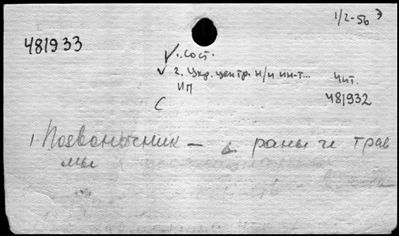 1/2-56 Э
481933
✓1. сост.
✓ 2. Укр. центр. н/и ин-т...
ИП
чит.
481932
С
1. Позвоночник — раны и трав
мы